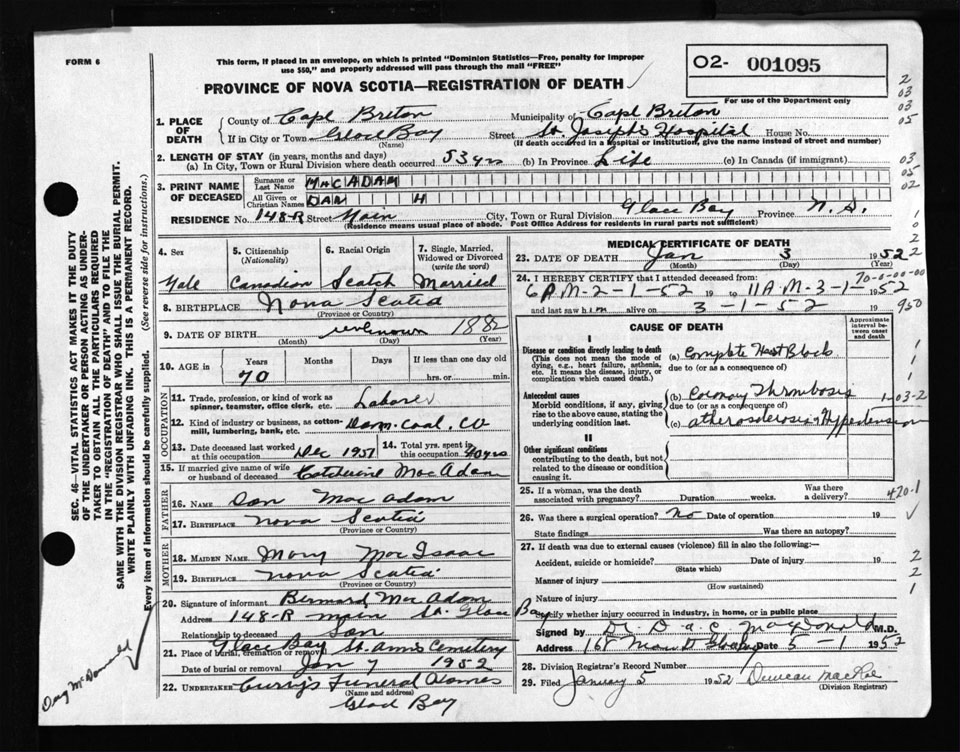 FORM 6
This form, if placed in an envelope, on which is printed "Dominion Statistics—Free, penalty for improper
use $50," and properly addressed will pass through the mail "FREE"
PROVINCE OF NOVA SCOTIA—REGISTRATION OF DEATH
02- 001095
For use of the Department only
2
03
03
05
03
05
02
1. PLACE OF DEATH
County of Cape Breton Municipality of Cape Breton
If in City or Town Glace Bay Street St. Joseph's Hospital House No.
(Name) (If death occurred in a hospital or institution, give the name instead of street and number)
2. LENGTH OF STAY (in years, months and days)
(a) In City, Town or Rural Division where death occurred 53 yrs (b) In Province Life (c) In Canada (if immigrant)
3. PRINT NAME OF DECEASED
Surname or Last Name MACADAM
All Given or Christian Names DAN H
RESIDENCE No. 148-R Street Main City, Town or Rural Division Glace Bay Province N.S.
(Residence means usual place of abode. Post Office Address for residents in rural parts not sufficient)
4. Sex 5. Citizenship (Nationality) 6. Racial Origin 7. Single, Married, Widowed or Divorced (write the word)
Male Canadian Scotch Married
8. BIRTHPLACE Nova Scotia
(Province or Country)
9. DATE OF BIRTH unknown 1882
(Month) (Day) (Year)
10. AGE in Years Months Days If less than one day old
70 hrs. or min.
OCCUPATION
11. Trade, profession, or kind of work as
spinner, teamster, office clerk, etc. Laborer
12. Kind of industry or business, as cotton-
mill, lumbering, bank, etc. Dom. Coal, Co
13. Date deceased last worked at this occupation Dec 1951 14. Total yrs. spent in this occupation 40 yrs
15. If married give name of wife
or husband of deceased Catherine MacAdam
FATHER
16. NAME Dan MacAdam
17. BIRTHPLACE Nova Scotia
(Province or Country)
MOTHER
18. MAIDEN NAME Mary MacIsaac
19. BIRTHPLACE Nova Scotia
(Province or Country)
20. Signature of informant Bernard MacAdam
Address 148-R Main St. Glace Bay
Relationship to deceased Son
21. Place of burial, cremation or removal Glace Bay St. Anns Cemetery
Date of burial or removal Jan 7 1952
22. UNDERTAKER Curry's Funeral Homes
(Name and address)
Glace Bay
MEDICAL CERTIFICATE OF DEATH
23. DATE OF DEATH Jan 3 1952
(Month) (Day) (Year)
24. I HEREBY CERTIFY that I attended deceased from:
70-0-00-00
6 P.M-2-1-52 19 to 11 A M-3-1-1952
and last saw him alive on 3-1-52 19 950
CAUSE OF DEATH
Approximate interval between onset and death
I
Disease or condition directly leading to death (a) Complete Heart Block
(This does not mean the mode of dying, e.g., heart failure, asthenia, etc. It means the disease, injury, or complication which caused death.
due to (or as a consequence of)
Antecedent causes (b) Coronary Thrombosis
Morbid conditions, if any, giving rise to the above cause, stating the underlying condition last.
due to (or as a consequence of)
(c) atherosclerosis Hypertension
1-03-2
II
Other significant conditions
contributing to the death, but not related to the disease or condition causing it.
25. If a woman, was the death associated with pregnancy? Duration weeks. Was there a delivery?
420-1
26. Was there a surgical operation? No Date of operation 19
State findings Was there an autopsy?
27. If death was due to external causes (violence) fill in also the following:—
Accident, suicide or homicide? Date of injury 19
(State which)
Manner of injury
(How sustained)
Nature of injury
Specify whether injury occurred in industry, in home, or in public place
Signed by Dr. D a C MacDonald M.D.
Address 168 Main St Glace Bay Date 5-1 1952
28. Division Registrar's Record Number
29. Filed January 5 1952 Duncan MacRae
(Division Registrar)
SEC. 46—VITAL STATISTICS ACT MAKES IT THE DUTY
OF THE UNDERTAKER OR PERSON ACTING AS UNDER-
TAKER TO OBTAIN ALL THE PARTICULARS REQUIRED
IN THE "REGISTRATION OF DEATH" AND TO FILE THE
SAME WITH THE DIVISION REGISTRAR WHO SHALL ISSUE THE BURIAL PERMIT.
WRITE PLAINLY WITH UNFADING INK. THIS IS A PERMANENT RECORD.
Every item of information should be carefully supplied. (See reverse side for instructions.)